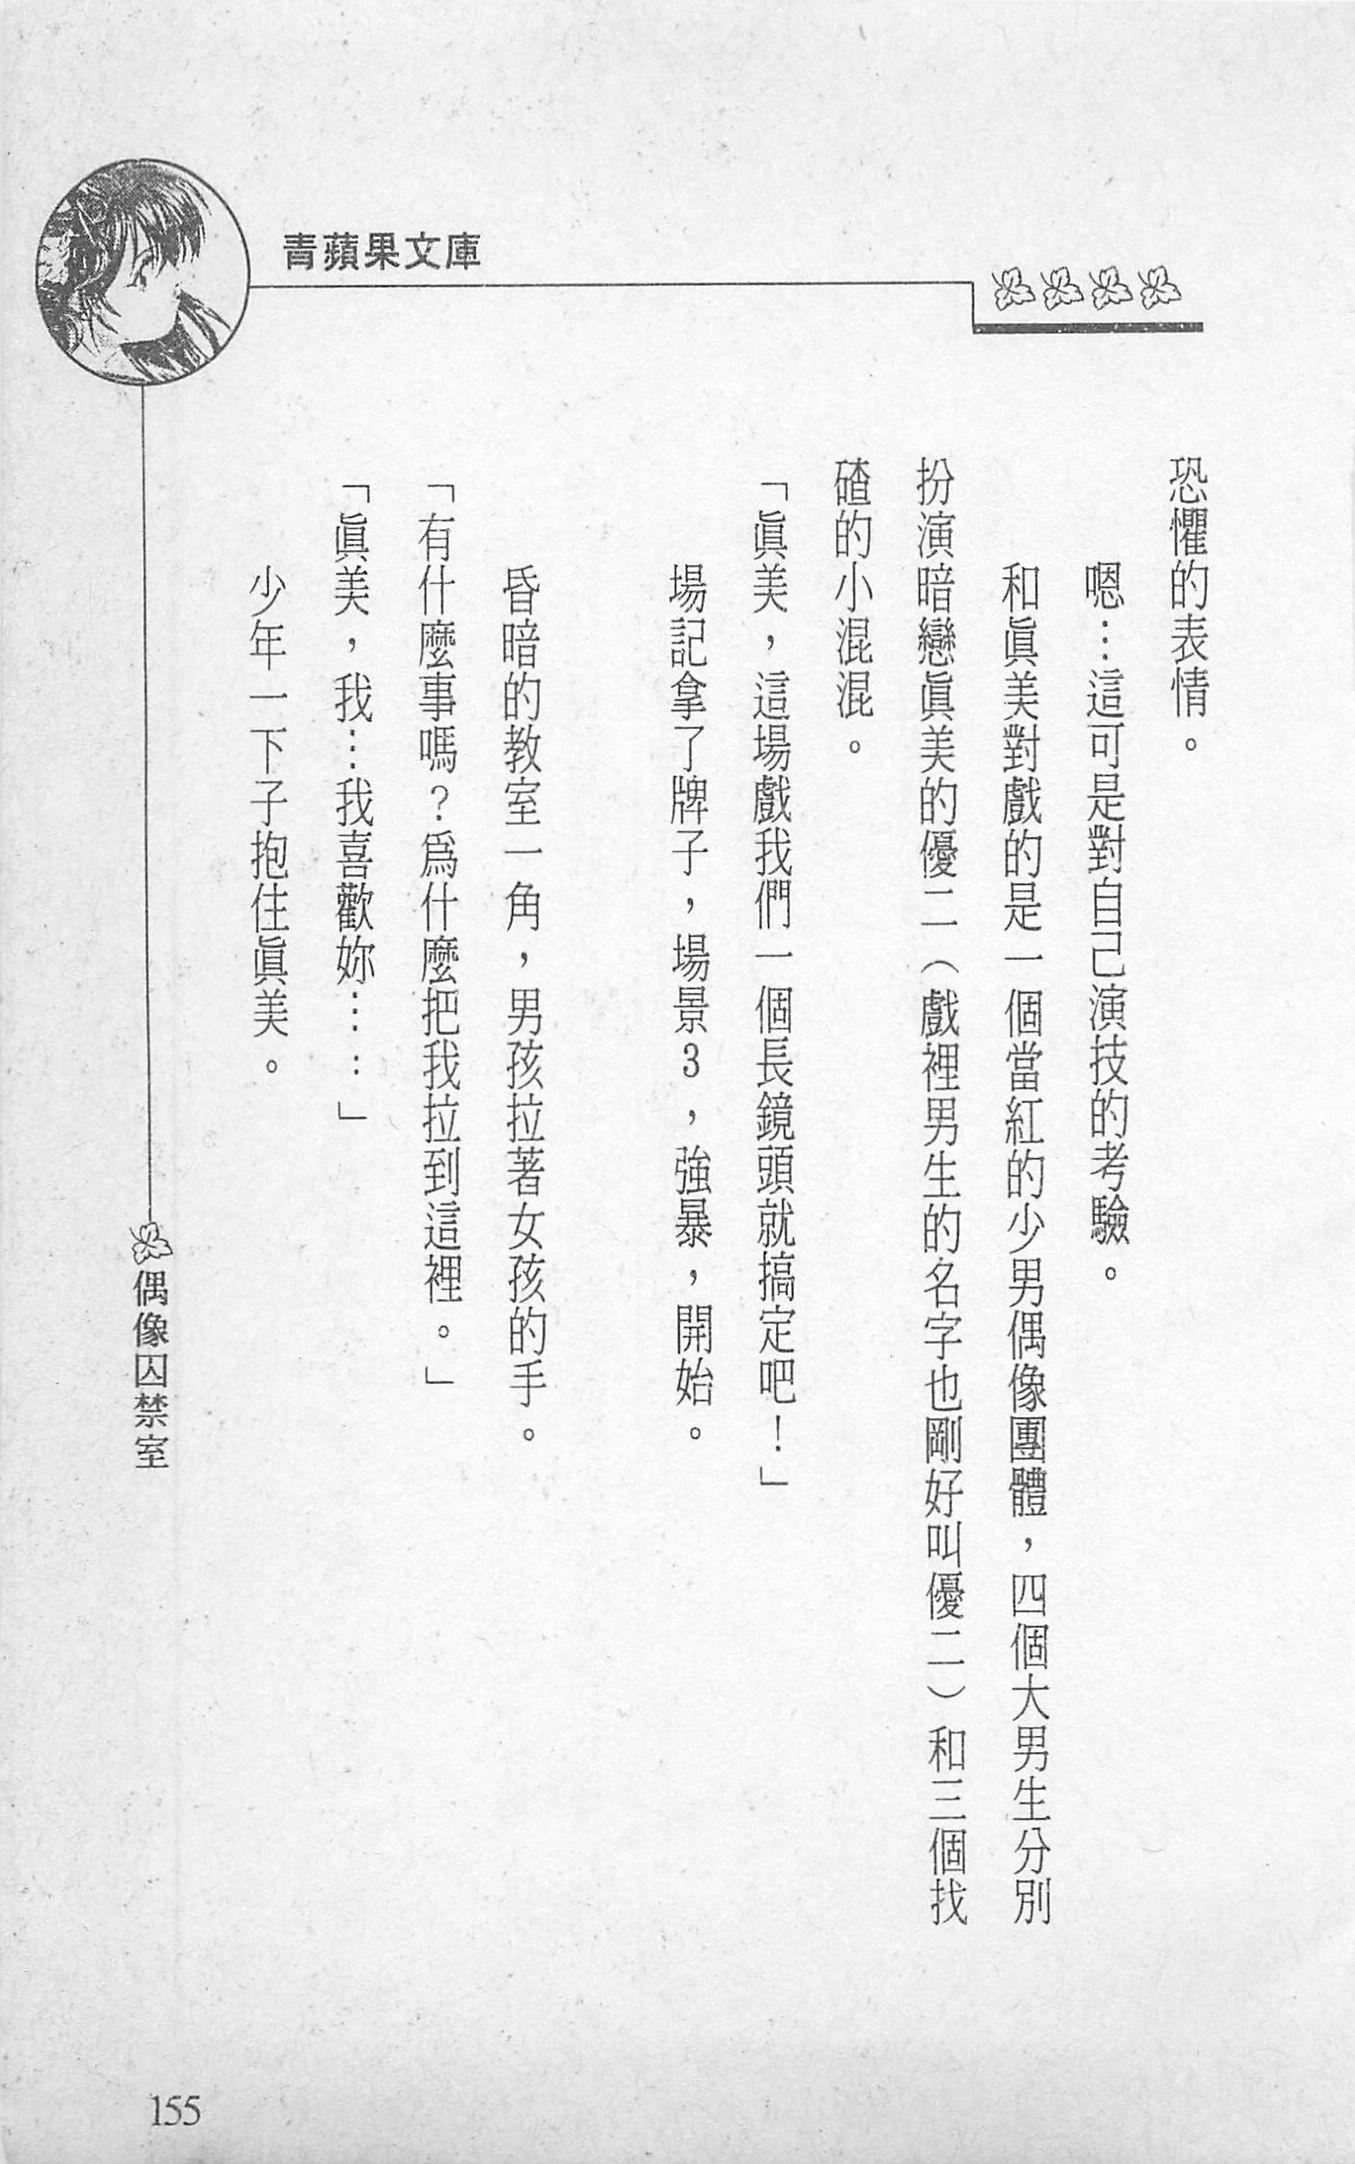 青蘋果文庫
恐懼的表情。
嗯…這可是對自己演技的考驗。
和眞美對戲的是一個當紅的少男偶像團體，四個大男生分別
扮演暗戀眞美的優二（戲裡男生的名字也剛好叫優二）和三個找
碴的小混混。
「眞美，這場戲我們一個長鏡頭就搞定吧！」
場記拿了牌子，場景3，強暴，開始。
昏暗的教室一角，男孩拉著女孩的手。
「有什麼事嗎？爲什麼把我拉到這裡。」
「眞美，我…我喜歡妳……」
少年一下子抱住眞美。
偶像囚禁室
155